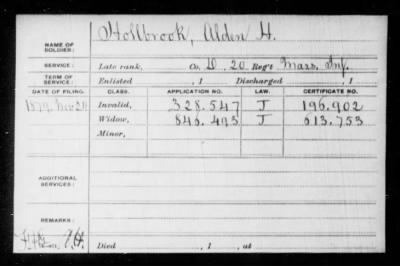 Hollbrook, Alden H.
NAME OF SOLDIER:
SERVICE: Late rank, Co. D. 20 Reg't Mass. Inf.
TERM OF SERVICE: Enlisted , 1 Discharged , 1
DATE OF FILING. CLASS. APPLICATION NO. LAW. CERTIFICATE NO.
1879. Nov 24 Invalid, 328.547 J 196.902
Widow, 846.493 J 613.753
Minor,
ADDITIONAL SERVICES:
REMARKS:
Died , 1 , at